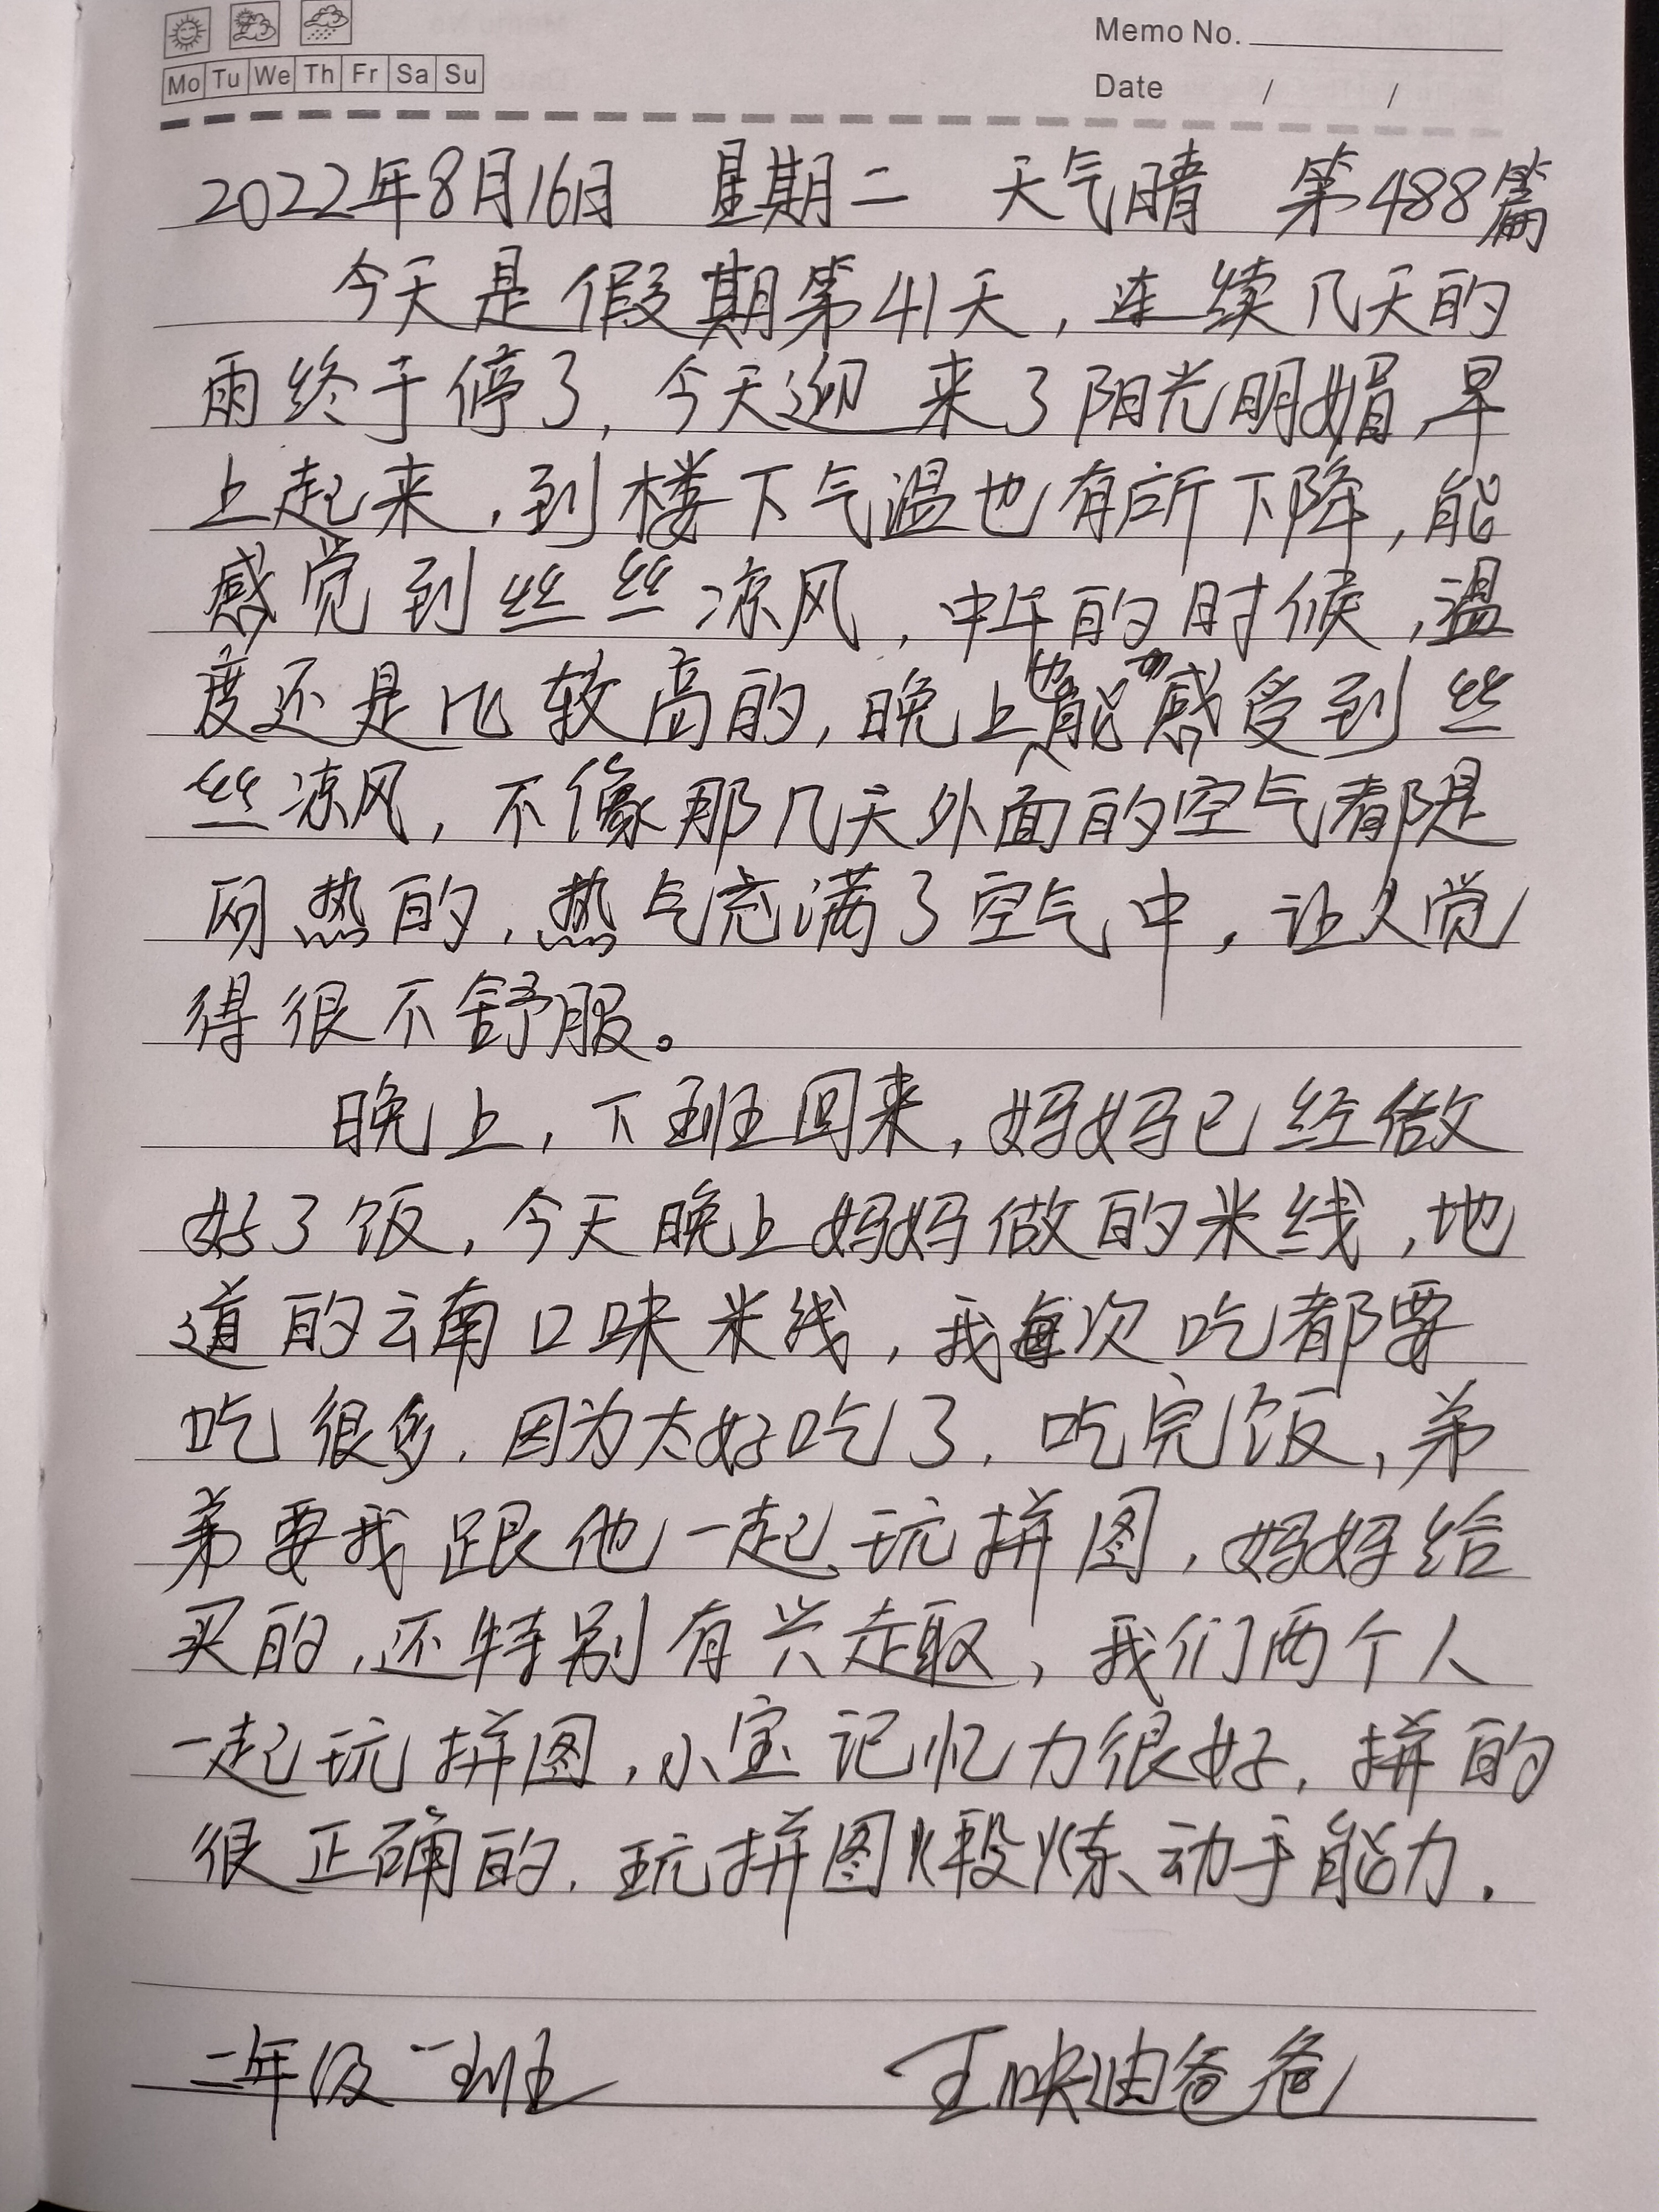 Memo No.
Mo Tu We Th Fr Sa Su
Date / /
2022年8月16日 星期二 天气晴 第488篇
今天是假期第41天，连续几天的
雨终于停了，今天迎来了阳光明媚，早
上起来，到楼下气温也有所下降，能
感觉到丝丝凉风，中午的时候，温
度还是比较高的，晚上也能感受到丝
丝凉风，不像那几天外面的空气都是
闷热的，热气充满了空气中，让人觉
得很不舒服。
晚上，下班回来，妈妈已经做
好了饭，今天晚上妈妈做的米线，地
道的云南口味米线，我每次吃都要
吃很多，因为太好吃了，吃完饭，弟
弟要我跟他一起玩拼图，妈妈给
买的，还特别有兴趣，我们两个人
一起玩拼图，小宝记忆力很好，拼的
很正确的，玩拼图煅炼动手能力．
二年级一班 王映迪爸爸